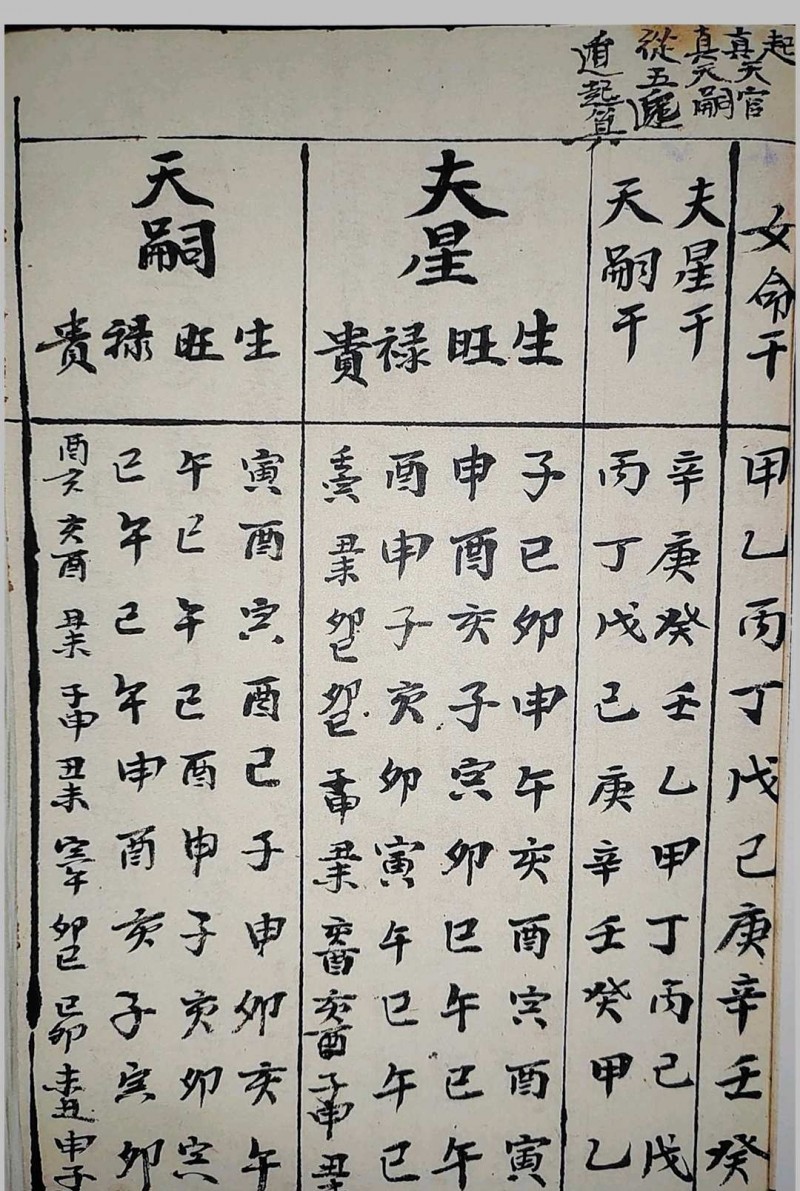 起
真天官
真天嗣
從五虎
遁起算
女命干
甲乙丙丁戊己庚辛壬癸
夫星干
辛庚癸壬乙甲丁丙己戊
天嗣干
丙丁戊己庚辛壬癸甲乙
夫星
生子巳卯申午亥酉寅酉寅
旺申酉亥子寅卯巳午巳午
禄酉申子亥卯寅午巳午巳
貴寅丑未卯巳卯巳子申丑未亥酉亥酉子申丑
天嗣
生寅酉寅酉巳子申卯亥午
旺午巳午巳酉申子亥卯寅
禄巳午巳午申酉亥子寅卯
貴酉亥亥酉丑未子申丑未寅午卯巳巳卯未丑申子